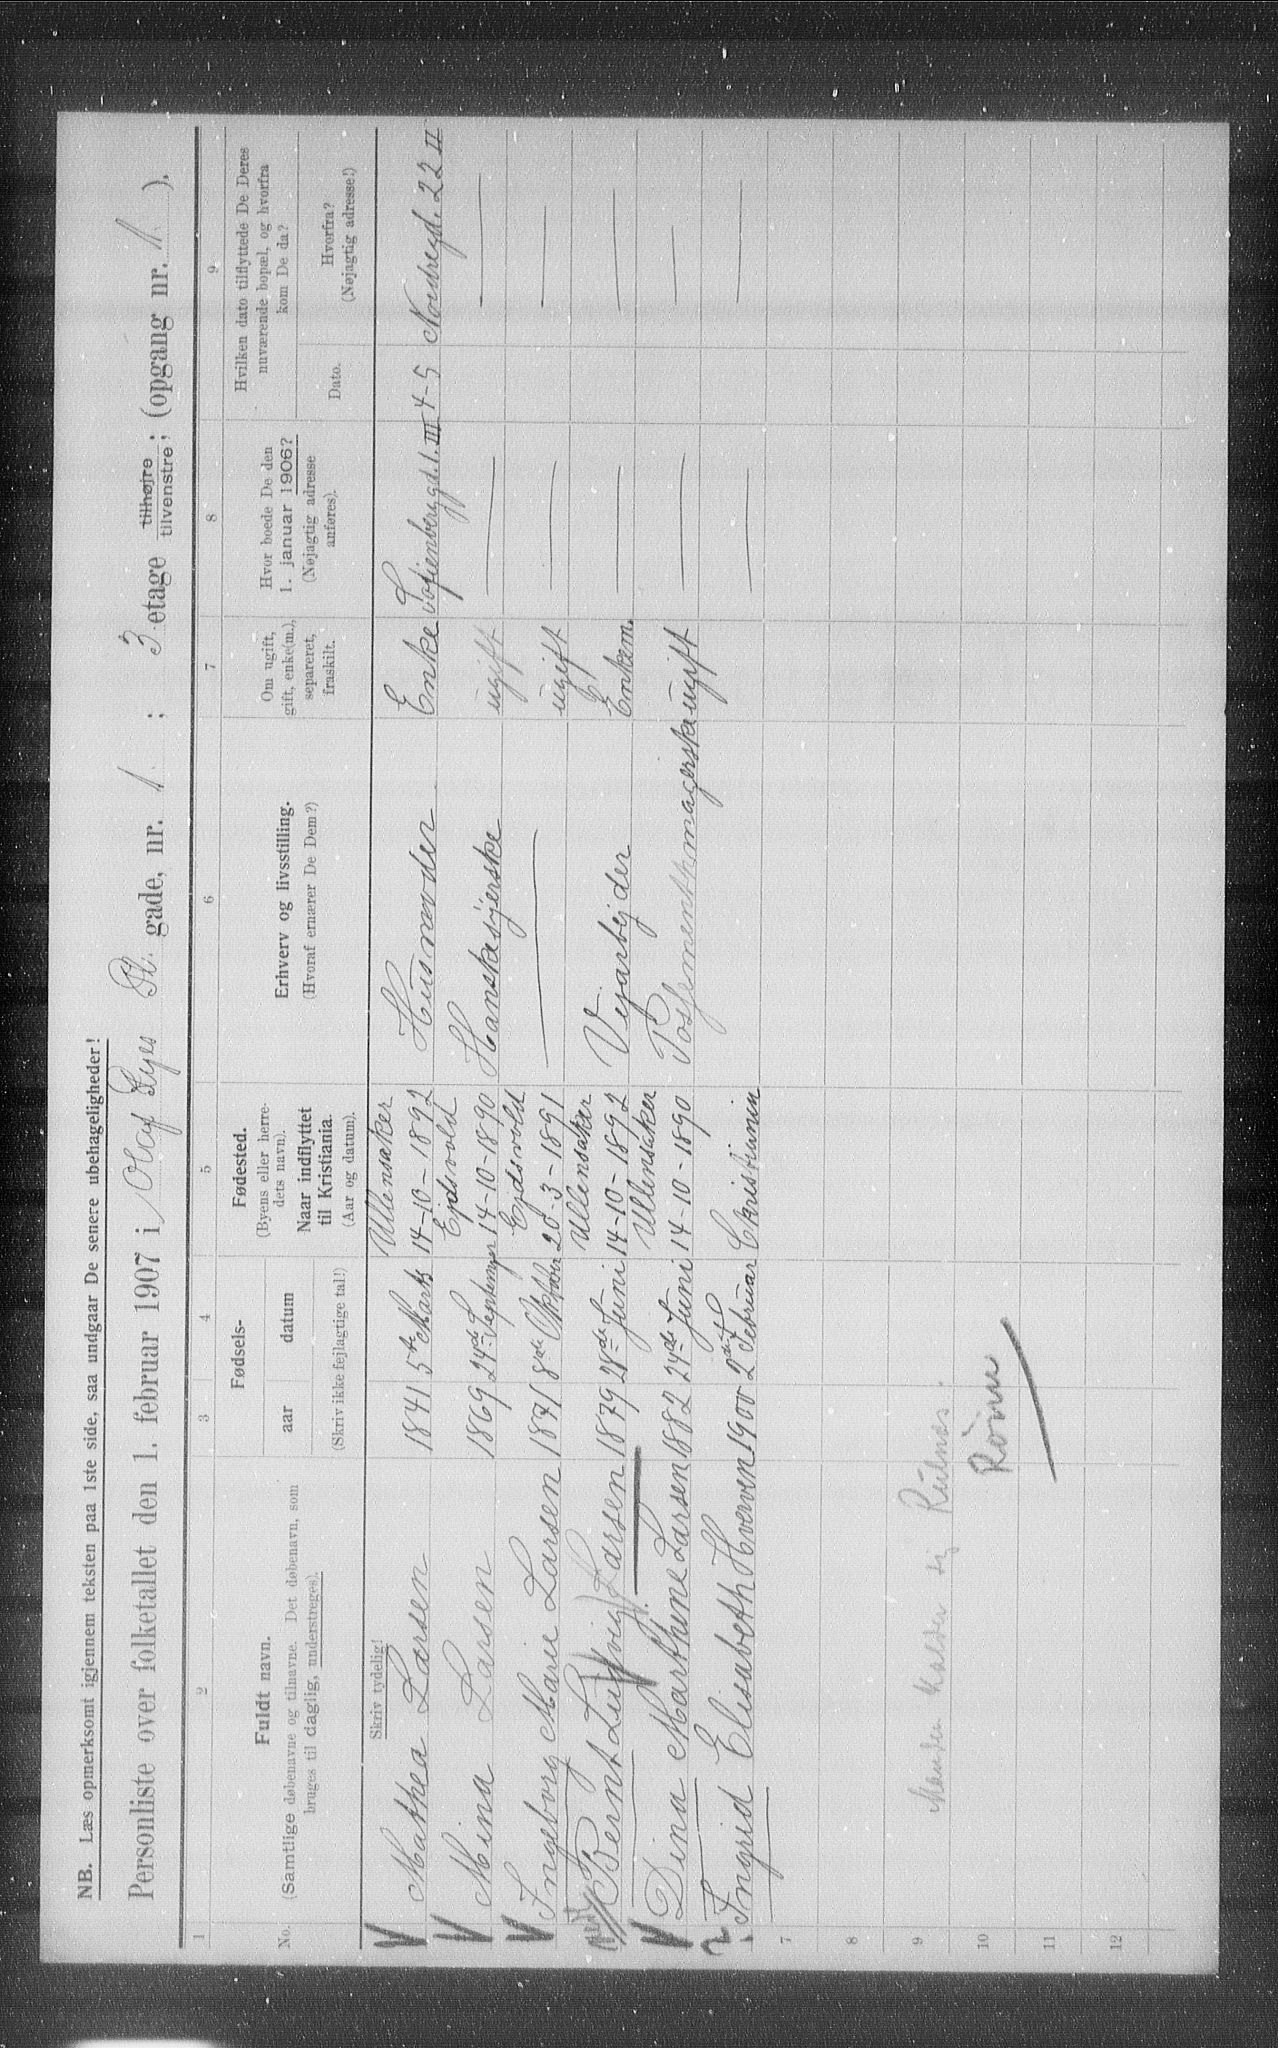 NB. Læs opmerksomt igjennem teksten paa 1ste side, saa undgaar De senere ubehageligheder!
Personliste over folketallet den 1. februar 1907 i Olaf Ryes Pl. gade, nr. 1 ; 3 etage tilhøjre tilvenstre; (opgang nr. 1).
1 2 3 4 5 6 7 8 9
No.
Fuldt navn.
(Samtlige døbenavne og tilnavne. Det døbenavn, som
bruges til daglig, understreges).
Fødsels-
aar datum
(Skriv ikke fejlagtige tal!)
Fødested.
(Byens eller herre-
dets navn).
Naar indflyttet
til Kristiania.
(Aar og datum).
Erhverv og livsstilling.
(Hvoraf ernærer De Dem?)
Om ugift,
gift, enke(m.),
separeret,
fraskilt.
Hvor boede De den
1. januar 1906?
(Nøjagtig adresse
anføres).
Hvilken dato tilflyttede De Deres
nuværende bopæl, og hvorfra
kom De da?
Dato.
Hvorfra?
(Nøjagtig adresse!)
Skriv tydelig!
Ullensaker
Mathea Larsen 1841 5te Marts 14-10-1892 Husmoder Enke Sofienberggd. 1. III 4-5 Nordregd. 22 II
Ejdsvold
Mina Larsen 1869 24de September 14-10-1890 Hanskesyerske ugift — —
Ejdsvold
Ingeborg Marie Larsen 1871 8de Oktober 20-3-1891 — ugift — —
Ullensaker
Bernt Ludvig Larsen 1879 28de Juni 14-10-1892 Vejarbejder Enkem. — —
Ullensaker
Dina Marthine Larsen 1882 24de Juni 14-10-1890 Possementmagerske ugift — —
? Ingrid Elisabeth Hverven 1900 2den Februar Christiania — —
7
8
9 Manden kalder sig Rulnes.
10
11
12